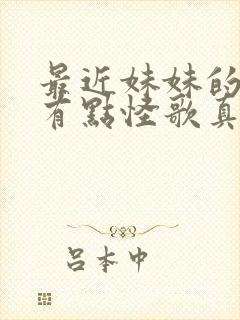 最近妹妹的
有點怪歌真
呂本中